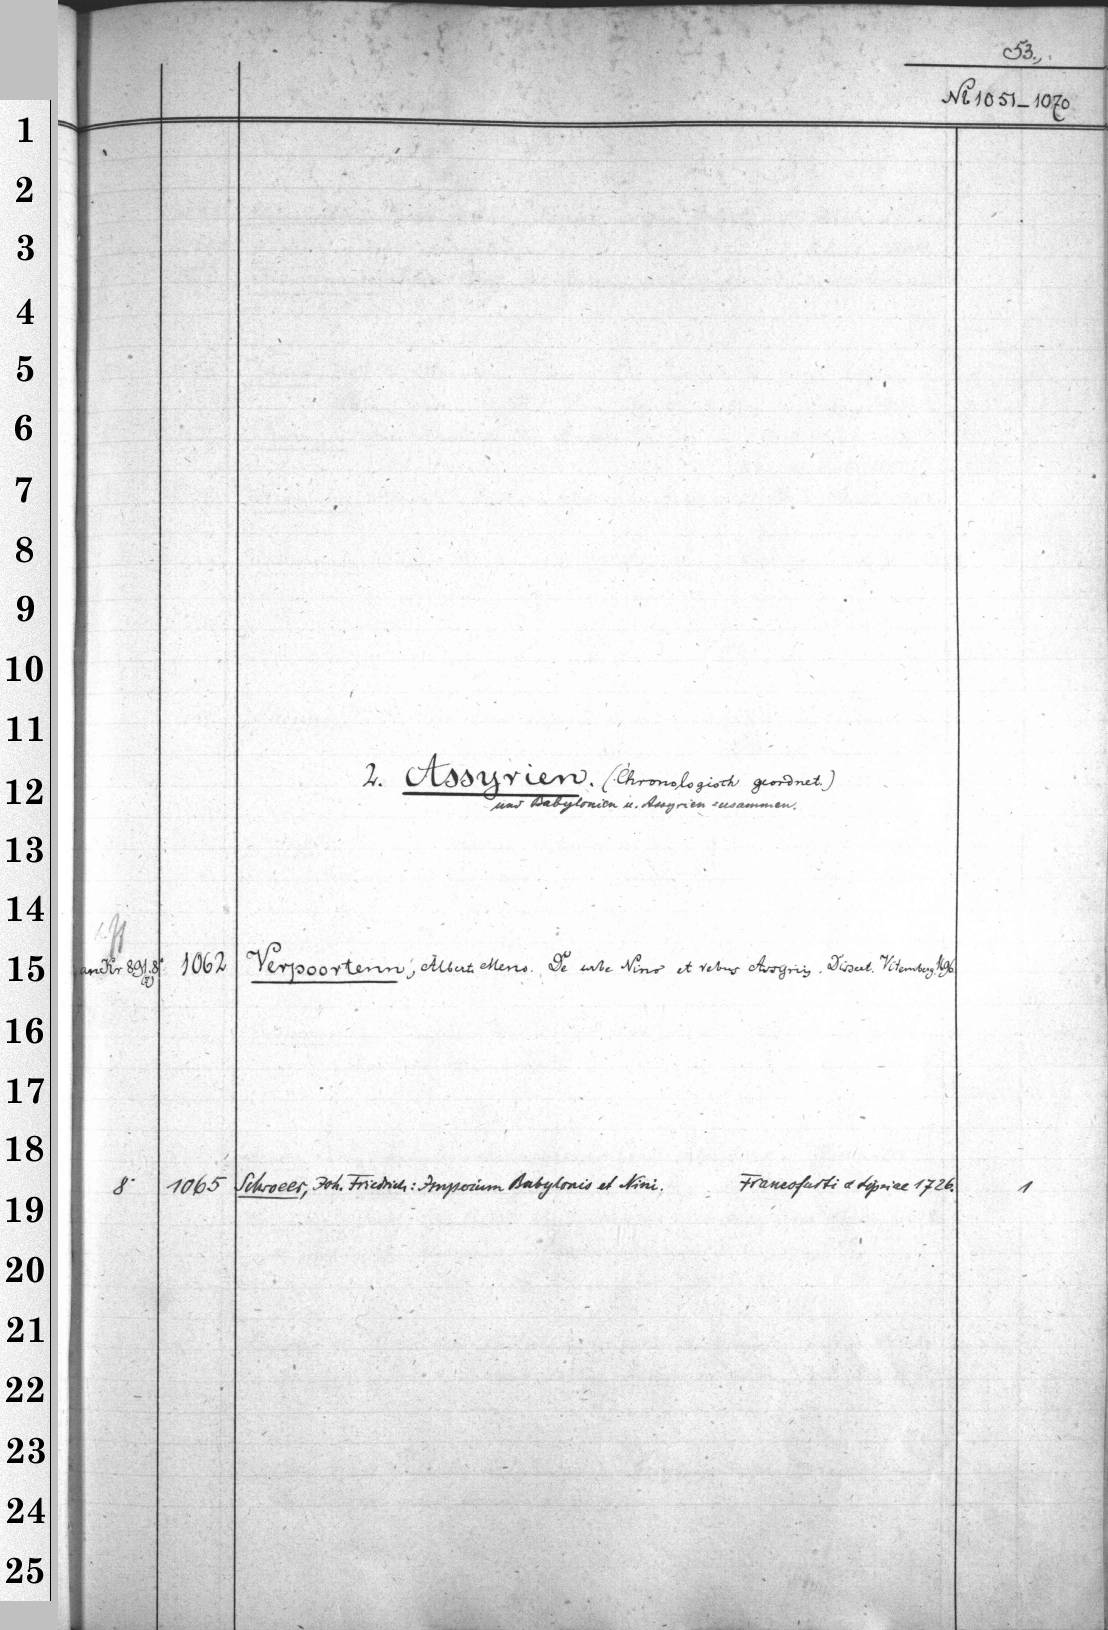 53.
№ 1051–1070
1
2
3
4
5
6
7
8
9
10
11
2. Assyrien. (Chronologisch geordnet.)
12
und Babylonien u. Assyrien zusammen.
13
14
15 an Kr 891.8° 1062 Verpoortenn, Albert. Meno. De urbe Nino et rebus Assyriis. Dissert. Vitemberg. 1696
(2)
16
17
18
8° 1065 Schroeer, Joh. Friedrich: Imperium Babylonis et Nini. Francofurti & Lipsiae 1726. 1
19
20
21
22
23
24
25